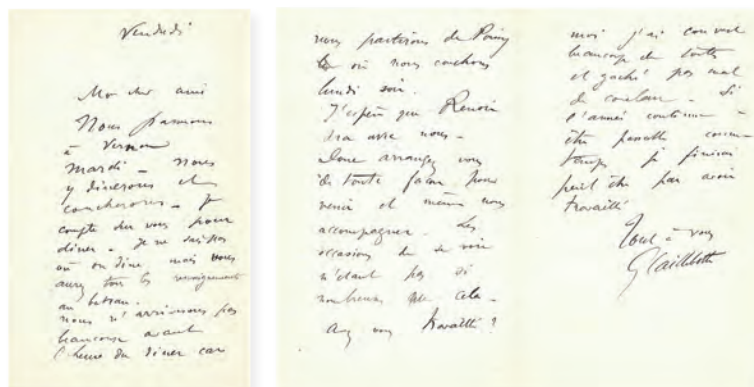 Vendredi
Mon cher ami
Nous passerons
à Vernon
mardi - nous
y dinerons et
coucherons - Je
compte sur vous pour
diner - Je ne sais pas
où on dine, mais vous
aurez tous les renseignements
au bateau.
nous n'arriverons pas
beaucoup avant
l'heure du diner car
nous partirons de Poissy
où nous couchons
lundi soir.
J'espère que Renoir
sera avec nous -
Donc arrangez vous
de toute façon pour
venir et même nous
accompagner - Les
occasions de se voir
n'étant pas si
nombreuses que cela -
Avez vous travaillé ?
moi j'ai couvert
beaucoup de toiles
et gaché pas mal
de couleur - Si
l'année continue à
être pareille comme
temps je finirai
peut être par avoir
travaillé
Tout à vous
G Caillebotte